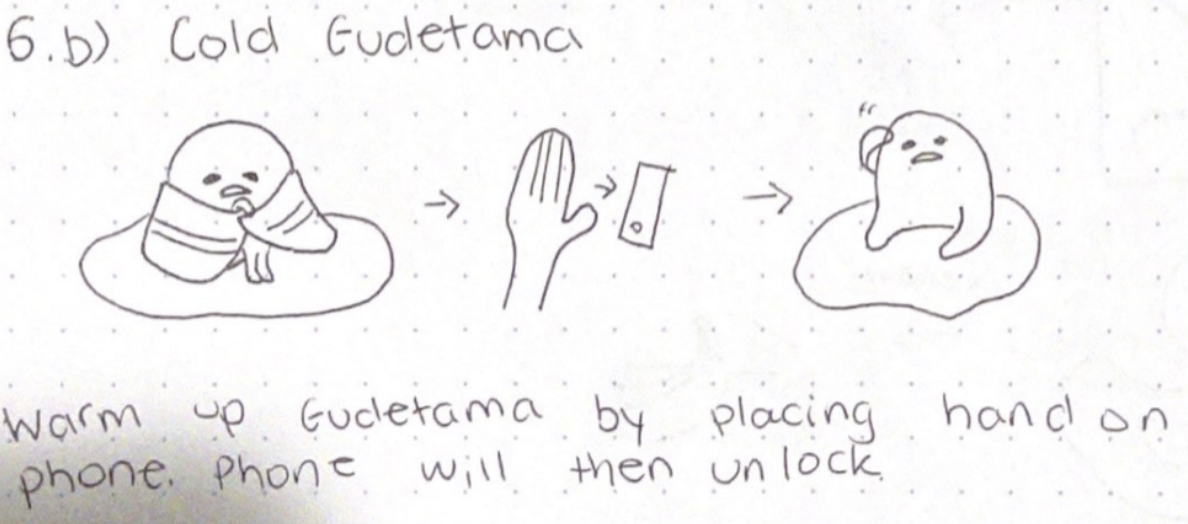 6.b) Cold Gudetama
Warm up Gudetama by placing hand on
phone. Phone will then unlock.